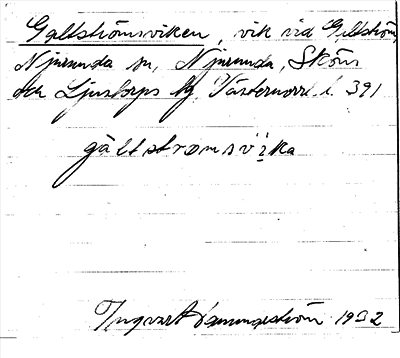 Galtströmsviken, vik vid Galtström,
Njurunda sn, Njurunda, Sköns
och Ljustorps tg, Västernorrl. l. 391
galtstromsvika
Ingvar 1932